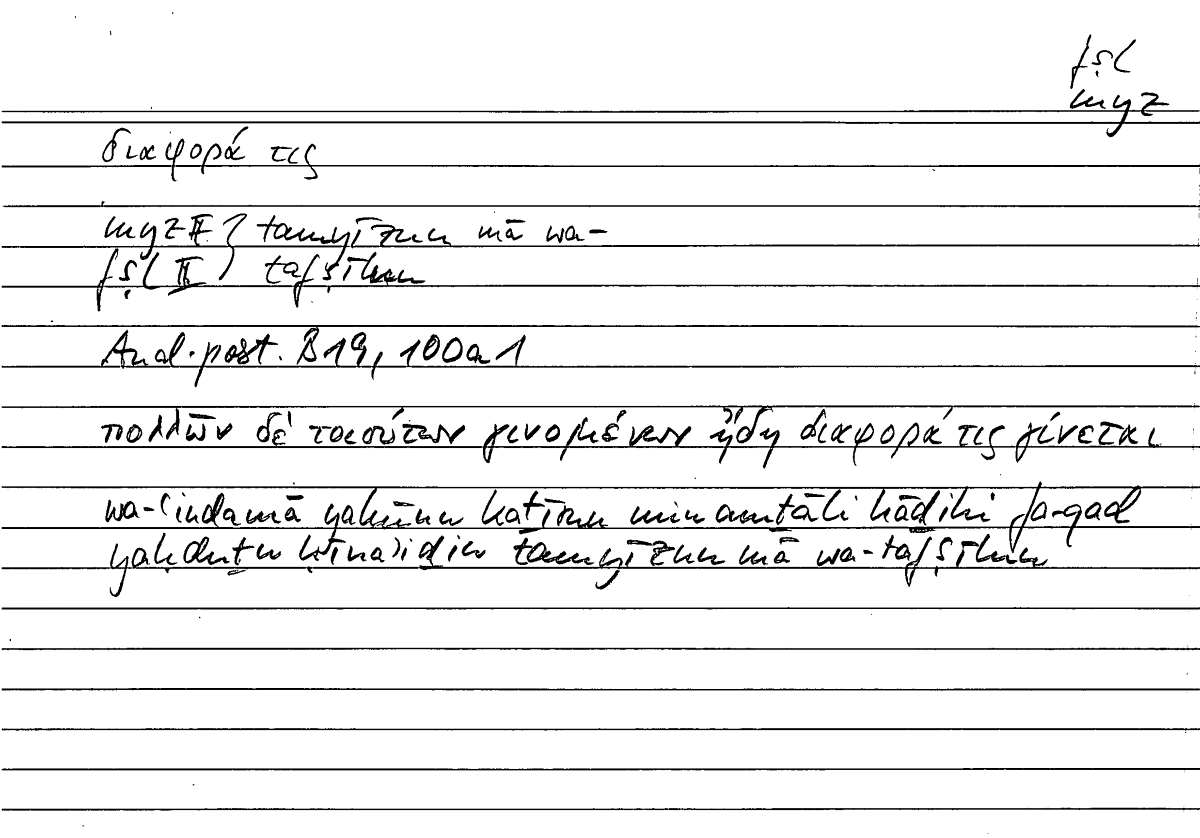 fṣl
myz
διαφορά τις
myz II } tamyīzun mā wa-
fṣl II ) tafṣīlun
Anal. post. B19, 100a1
πολλῶν δὲ τοιούτων γινομένων ἤδη διαφορά τις γίνεται
wa-ʿindamā yakūnu kaṯīrun min amṯāli hāḏihi fa-qad
yaḥduṯu ḥīnaʾiḏin tamyīzun mā wa-tafṣīlun